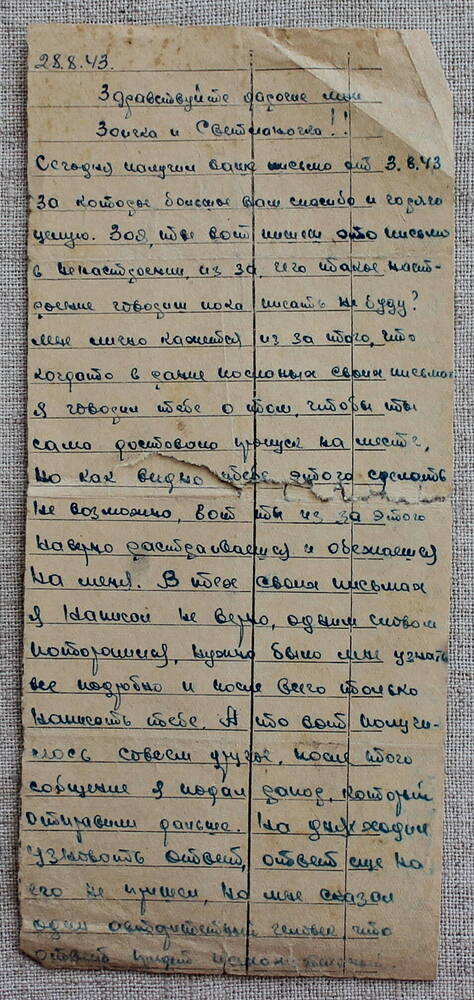 28.8.43.
Здравствуйте дорогие мои
Зоичка и Светланочка!!
Сегодня получил ваше письмо от 3.8.43
За которое большое вам спасибо и горячо
целую. Зоя, ты вот пишеш это письмо
в ненастроении, из за чего такое наст-
роение говориш пока писать не буду?
Мне лично кажется из за того, что
когдато в ранее посланых своих письмах
я говорил тебе о том, чтобы ты
сама доставала пропуск на месте,
но как видно тебе этого сделать
не возможно, вот ты из за этого
наверно растраиваешся и обежаешся
на меня. В тех своих письмах
я написал не верно, одним словом
поторопился, нужно было мне узнать
все подробно и после всего только
написать тебе. А то вот получи-
лось совсем другое, после этого
сообщение я подал рапорт, который
отправили дальше. На днях ходил
узновать ответ, ответ еще на
его не пришел, но мне сказал
один авторитетный человек что
ответ придет